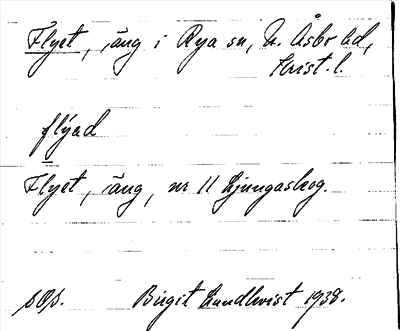 Flyet, äng i Rya sn, N. Åsbo hd,
Krist. l.
flýəd
Flyet, äng, nr 11 Ljungaskog.
sOp. Birgit Lundkvist 1938.